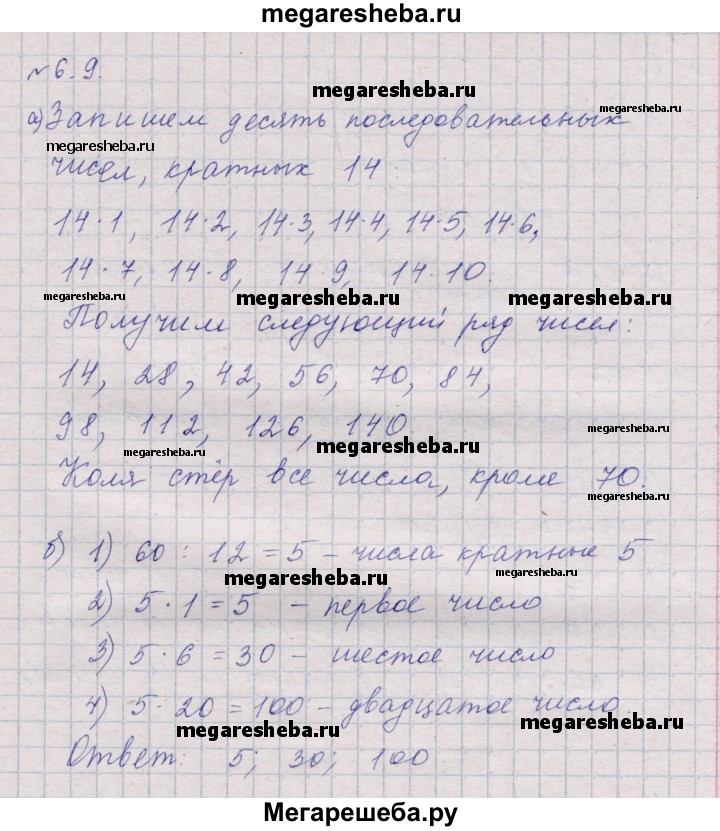 megaresheba.ru
№ 6.9.
megaresheba.ru
megaresheba.ru
а) Запишем десять последовательных
megaresheba.ru
чисел, кратных 14
14·1, 14·2, 14·3, 14·4, 14·5, 14·6,
14·7, 14·8, 14·9, 14·10.
megaresheba.ru megaresheba.ru megaresheba.ru
Получим следующий ряд чисел:
14, 28, 42, 56, 70, 84,
98, 112, 126, 140
megaresheba.ru
megaresheba.ru megaresheba.ru
Коля стёр все числа, кроме 70.
megaresheba.ru
б) 1) 60 : 12 = 5 – числа кратные 5
megaresheba.ru megaresheba.ru
2) 5 · 1 = 5 – первое число
3) 5 · 6 = 30 – шестое число
4) 5 · 20 = 100 – двадцатое число.
megaresheba.ru megaresheba.ru
Ответ: 5; 30; 100
Мегарешеба.ру